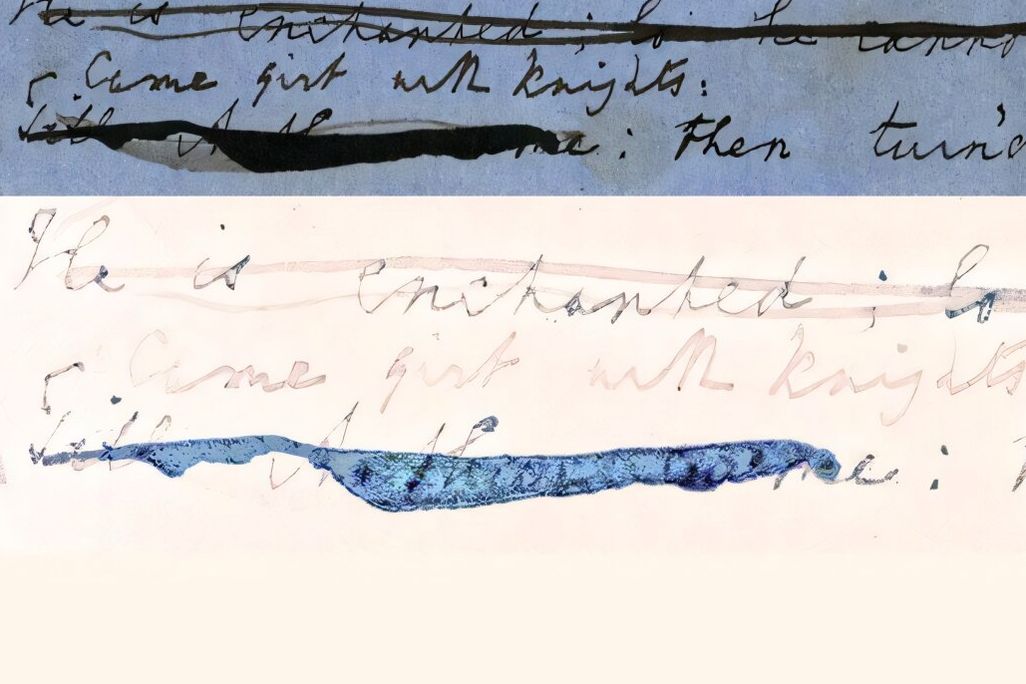 He is enchanted; lo he canno
Came girt with knights:
till at th me: then turn'd
He is enchanted; lo
Came girt with knights
till at th me: